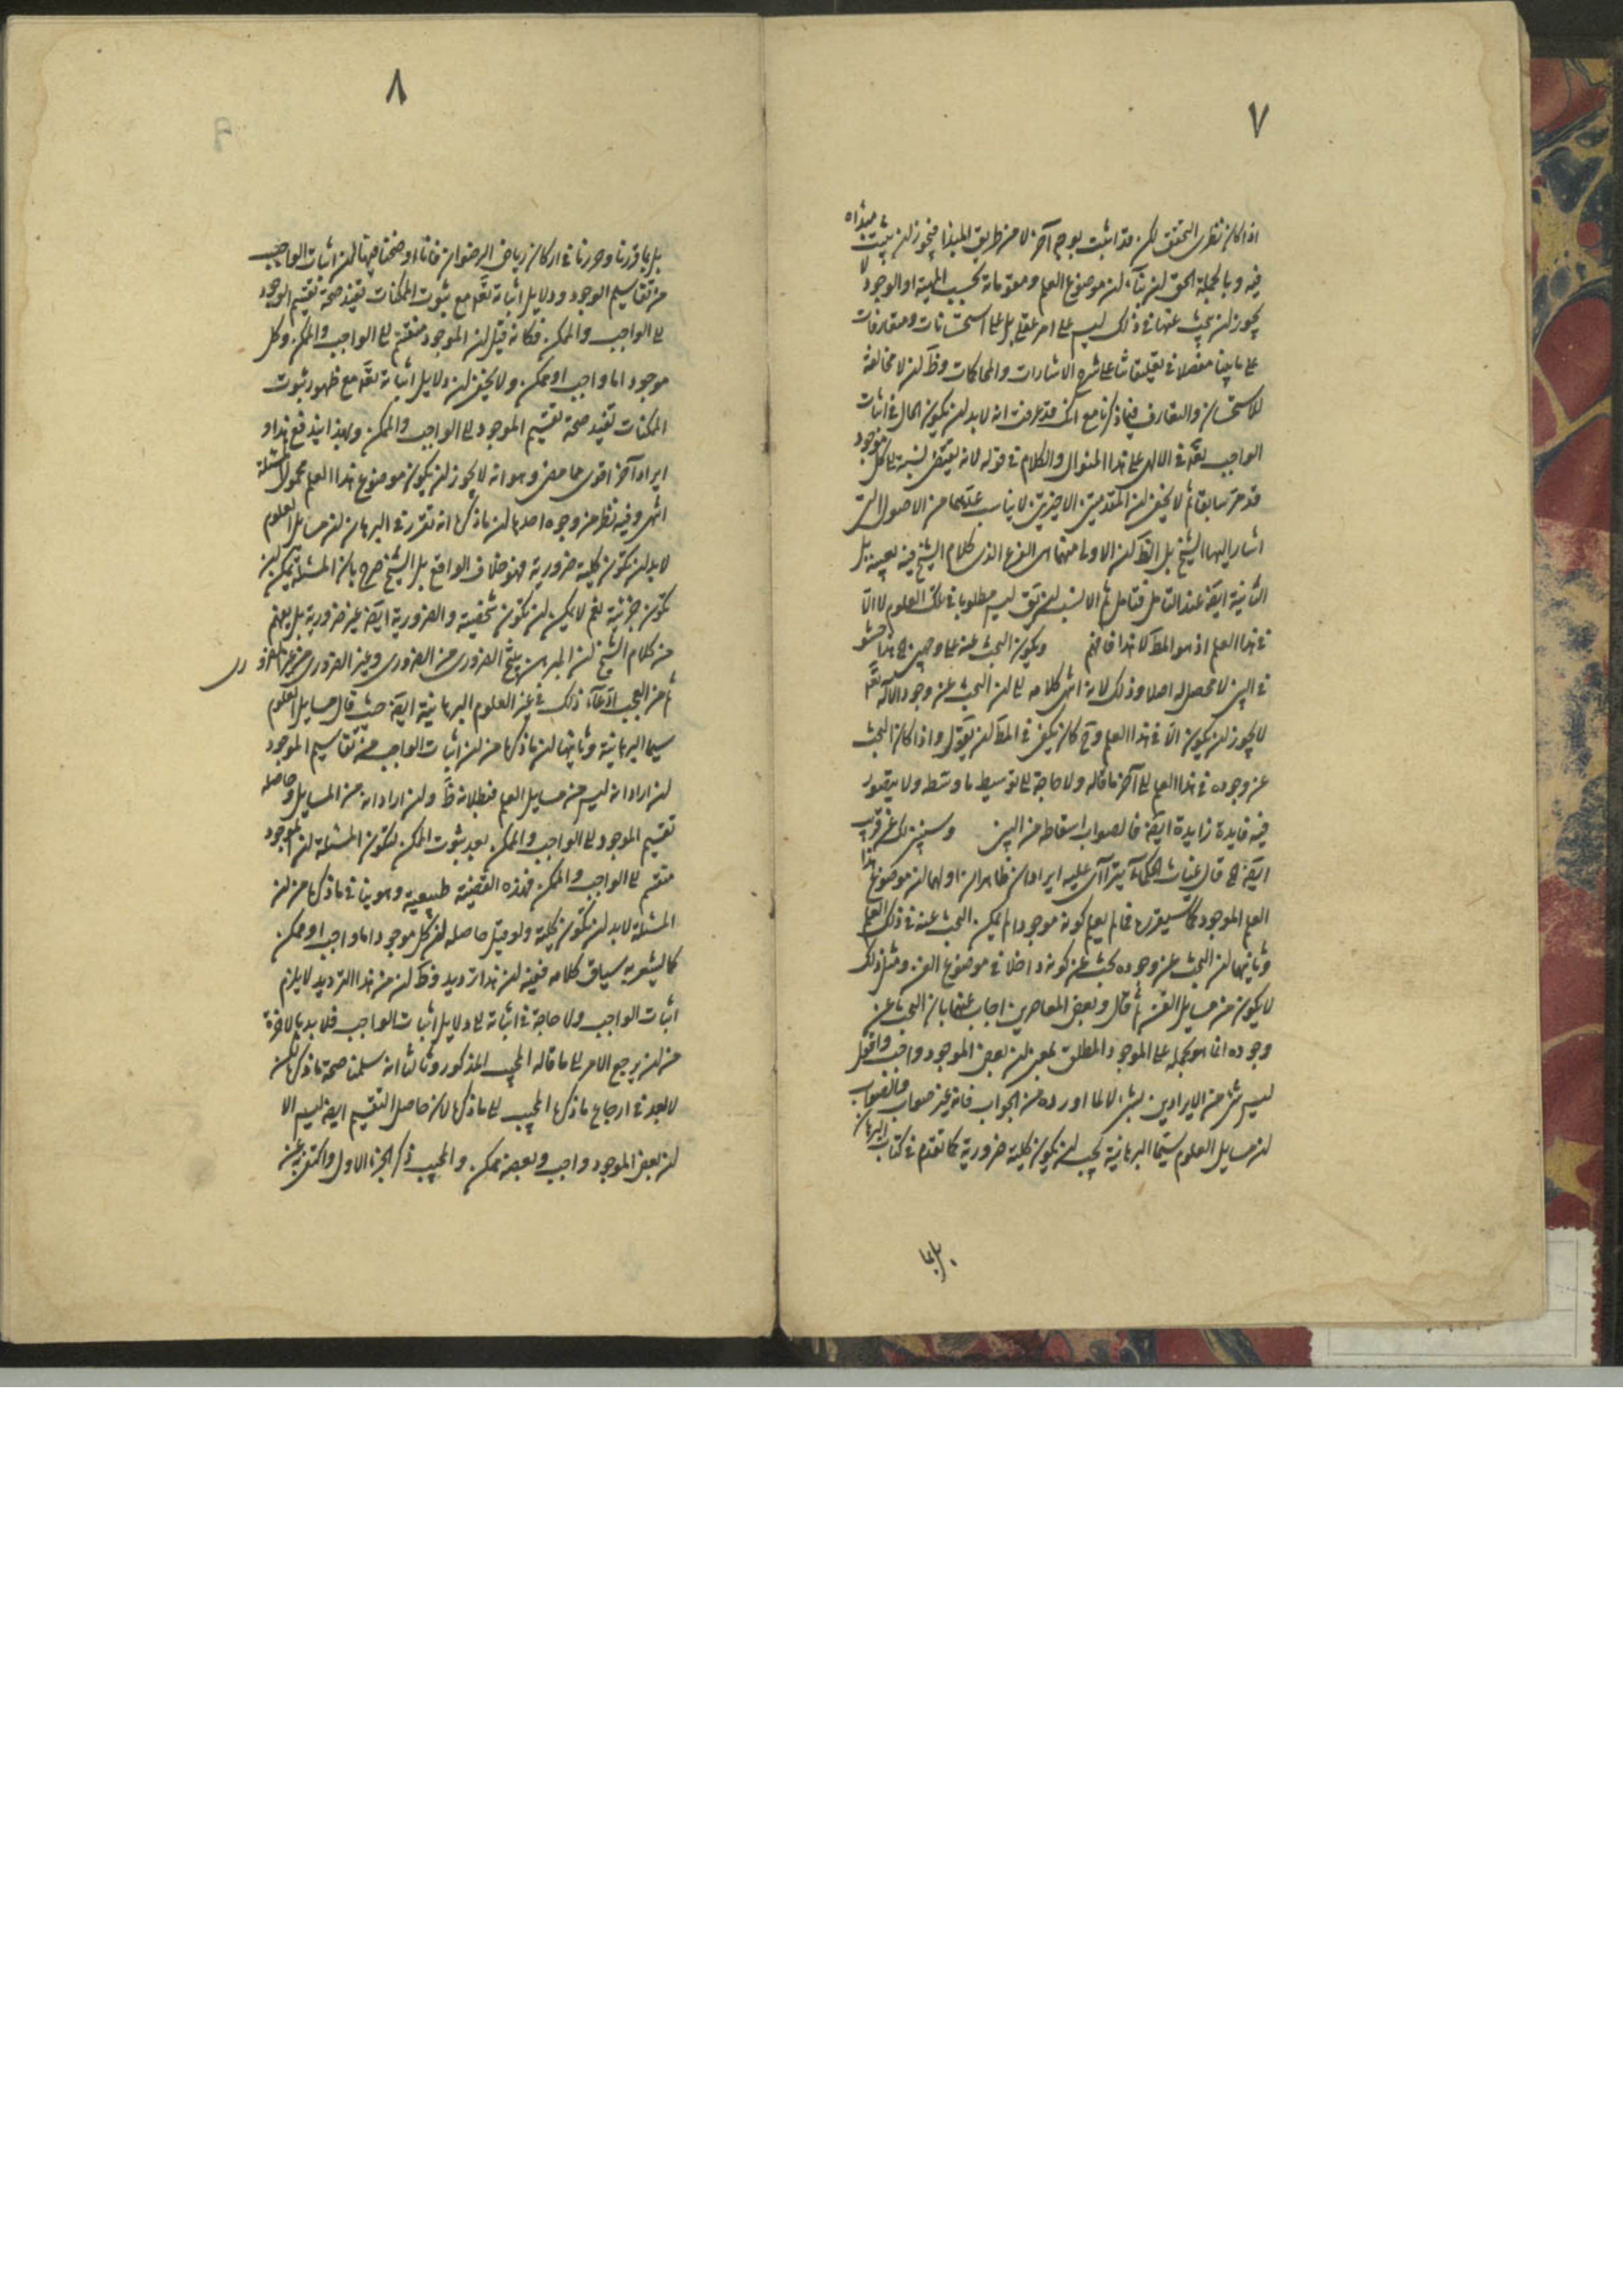 ٧
اذا كان نظرى التحقق لكن قد اثبت بوجه آخر لا من طريق المبدا فيجوز ان يثبت مبداه
فيه وبالجملة الحق ان بناء ان موضوع العلم ومقوماته بحسب المهية او الوجود لا
يجوز ان يبحث عنها فى ذلك ليس على امر عقلى بل على استحسانات ومتعارفات
على ما بينا مفصلا فى تعليقاتنا على شرح الاشارات والمحاكمات وظ ان لا مخالفة
للاستحسان والتعارف فيما ذكرنا مع انك قد عرفت انه لا بد ان يكون الحال فى اثبات
الواجب تعه فى الالهى على هذا المنوال والكلام فى قوله لانه يقتضى نسبته الى كل موجود
قد مر سابقا ثم لا يخفى ان المقدمتين الاخيرتين لا يناسب عدهما من الاصول التى
اشار اليها الشيخ بل الظ ان الاولى منهما هى الفرع الذى كلام الشيخ فيه بعينه بل
الثانية ايضه عند التامل فتامل ثم الانسب ان يقو ليس مطلوبا فى تلك العلوم لا الا
فى هذا العلم اذ هو المط لا هذا فافهم ويكون البحث عنه على وجهين الخ هذا حشو
فى البين لا محصل له اصلا وذلك لانه انتهى كلامه الى ان البحث عن وجود الاله تعه
لا يجوز ان يكون الا فى هذا العلم وح كان يكفى فى المط ان يقول واذا كان البحث
عن وجوده فى هذا العلم الى آخر ما قاله ولا حاجة الى توسيط ما وسطه ولا يتصور
فيه فايدة زايدة ايضه فالصواب اسقاطه من البين وسيتبين لك عن قريب
ايضه الخ قال غياث الحكماء يترااى عليه ايرادان ظاهران اولهما ان موضوع هذا
العلم الموجود كما سيقرر فما لم يعلم كونه موجودا لم يمكن البحث عنه فى ذلك العلم
وثانيهما ان البحث عن وجوده بحث عن كونه داخلا فى موضوع الفن ومثل ذلك
لا يكون من مسايل الفن ثم قال وبعض المعاصرين اجاب عنهما بان البحث عن
وجوده انما هو بحمله على الموجود المطلق بمعنى ان بعض الموجود واجب واقول
ليس شئ من الايرادين بشئ لا لما اورده من الجواب فانه غير صواب فالصواب
ان مسايل العلوم سيما البرهانية يجب ان يكون كلية ضرورية كما تقدم فى كتاب البرهان
بل بما
٨
بل بما قررنا وحررنا فى اركان رياض الرضوان فانا اوضحنا فيها ان اثبات الواجب
من تقاسيم الوجود ودلايل اثباته تعه مع ثبوت الممكنات يفيد صحة تقسيم الوجود
الى الواجب والممكن فكانه قيل ان الموجود منقسم الى الواجب والممكن وكل
موجود اما واجب او ممكن ولا يخفى ان دلايل اثباته تعه مع ظهور ثبوت
الممكنات تفيد صحة تقسيم الموجود الى الواجب والممكن وبهذا يندفع هذا و
ايراد آخر اقوى مما مضى وهو انه لا يجوز ان يكون موضوع هذا العلم محمول المسئلة
انتهى وفيه نظر من وجوه احدها ان ما ذكره انه تقرر فى البرهان ان مسايل العلوم
لا بد ان تكون كلية ضرورية فهو خلاف الواقع بل الشيخ صرح بان المسئلة يمكن ان
تكون جزئية نعم لا يمكن ان تكون شخصية والضرورية ايضه غير ضرورية بل يفهم
من كلام الشيخ ان المبرهن ينتج الضرورى من الضرورى وغير الضرورى من غير الضرورى
ثم من العجب ادعاء ذلك فى غير العلوم البرهانية ايضه حيث قال مسايل العلوم
سيما البرهانية وثانيها ان ما ذكره من ان اثبات الواجب من تقاسيم الموجود
ان اراد انه ليس من مسايل العلم فبطلانه ظ وان اراد انه من المسايل وحاصله
تقسيم الموجود الى الواجب والممكن بعد ثبوت الممكن لتكون المسئلة ان الموجود
منقسم الى الواجب والممكن فهذه القضية طبيعية وهو ينافى ما ذكره من ان
المسئلة لا بد ان تكون كلية ولو قيل حاصله ان كل موجود اما واجب او ممكن
كما يشعر به سياق كلامه ففيه ان هذا ترديد وظ ان من هذا الترديد لا يلزم
اثبات الواجب ولا حاجة فى اثباته الى دلايل اثبات الواجب فلا بد بالاخرة
من ان يرجع الامر الى ما قاله المجيب المذكور وثالثا انه سلمنا صحة ما ذكره لكن
لا بعد فى ارجاع ما ذكره المجيب الى ما ذكره لان حاصل التقسيم ايضه ليس الا
ان بعض الموجود واجب وبعضه ممكن والمجيب ذكر الجزء الاول واكتفى به عن